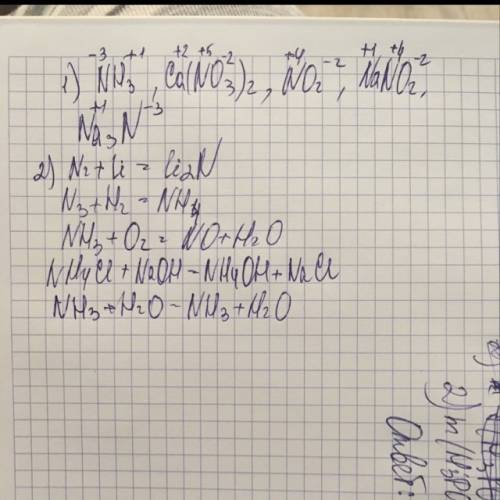 1) N⁻³H₃⁺¹, Ca⁺²(N⁺⁵O₃⁻²)₂, N⁺⁴O₂⁻², Na⁺¹N⁺⁴O₂⁻²,
Na₃⁺¹N⁻³
2) N₂ + Li = Li₂N
N₃ + H₂ = NH₄
NH₃ + O₂ = NO + H₂O
NH₄Cl + NaOH - NH₄OH + NaCl
NH₃ + H₂O - NH₃ + H₂O
2) m (H₃P
Ответ: